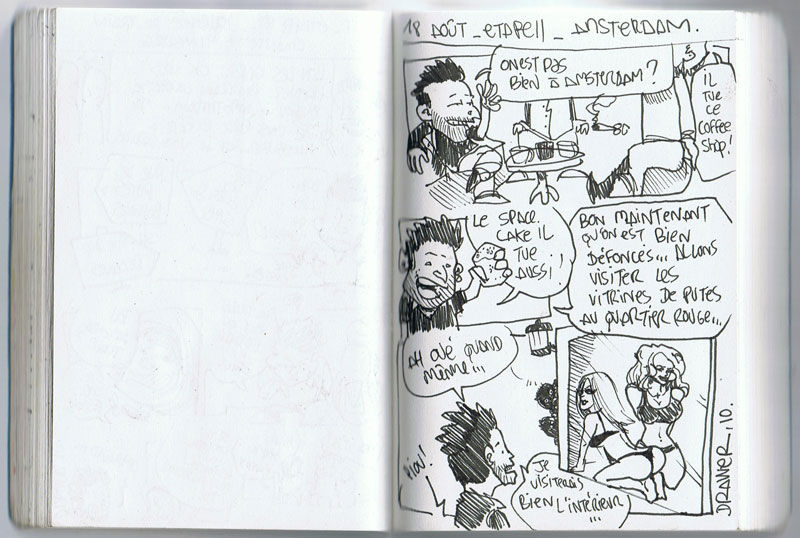 18 AOÛT _ ETAPE 11 _ AMSTERDAM.
ON EST PAS
BIEN À AMSTERDAM ?
IL
TUE
CE
COFFEE
SHOP !
LE SPACE
CAKE IL
TUE
AUSSI !
BON MAINTENANT
QU'ON EST BIEN
DÉFONCÉS... ALLONS
VISITER LES
VITRINES DE PUTES
AU QUARTIER ROUGE...
AH OUÉ QUAND
MÊME...
MIOU !
JE
VISITERAIS
BIEN L'INTÉRIEUR
...
DRAWER.10.